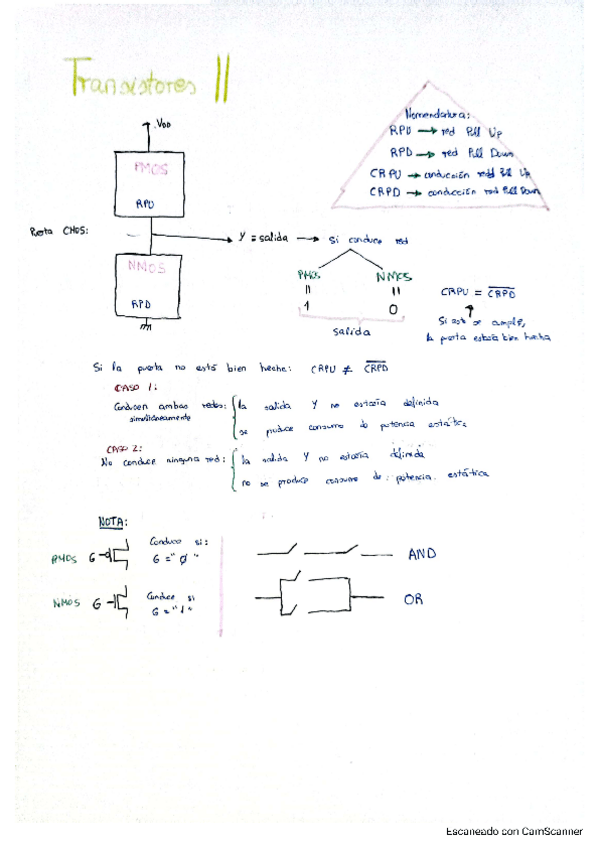 Transistores II
Nomenclatura:
RPU → red Pull Up
RPD → red Pull Down
CRPU → conducción red Pull Up
CRPD → conducción red Pull Down
VDD
PMOS
RPU
Puerta CMOS:
Y = salida → si conduce red
NMOS
RPD
PMOS NMOS
" "
1 0
salida
CRPU = \overline{CRPD}
Si esto se cumple,
la puerta estaría bien hecha
Si la puerta no está bien hecha: CRPU ≠ \overline{CRPD}
CASO 1:
Conducen ambas redes: la salida Y no estaría definida
simultáneamente
se produce consumo de potencia estática
CASO 2:
No conduce ninguna red: la salida Y no estaría definida
no se produce consumo de potencia estática
NOTA:
PMOS G Conduce si:
G = "0"
NMOS G Conduce si
G = "1"
AND
OR
Escaneado con CamScanner